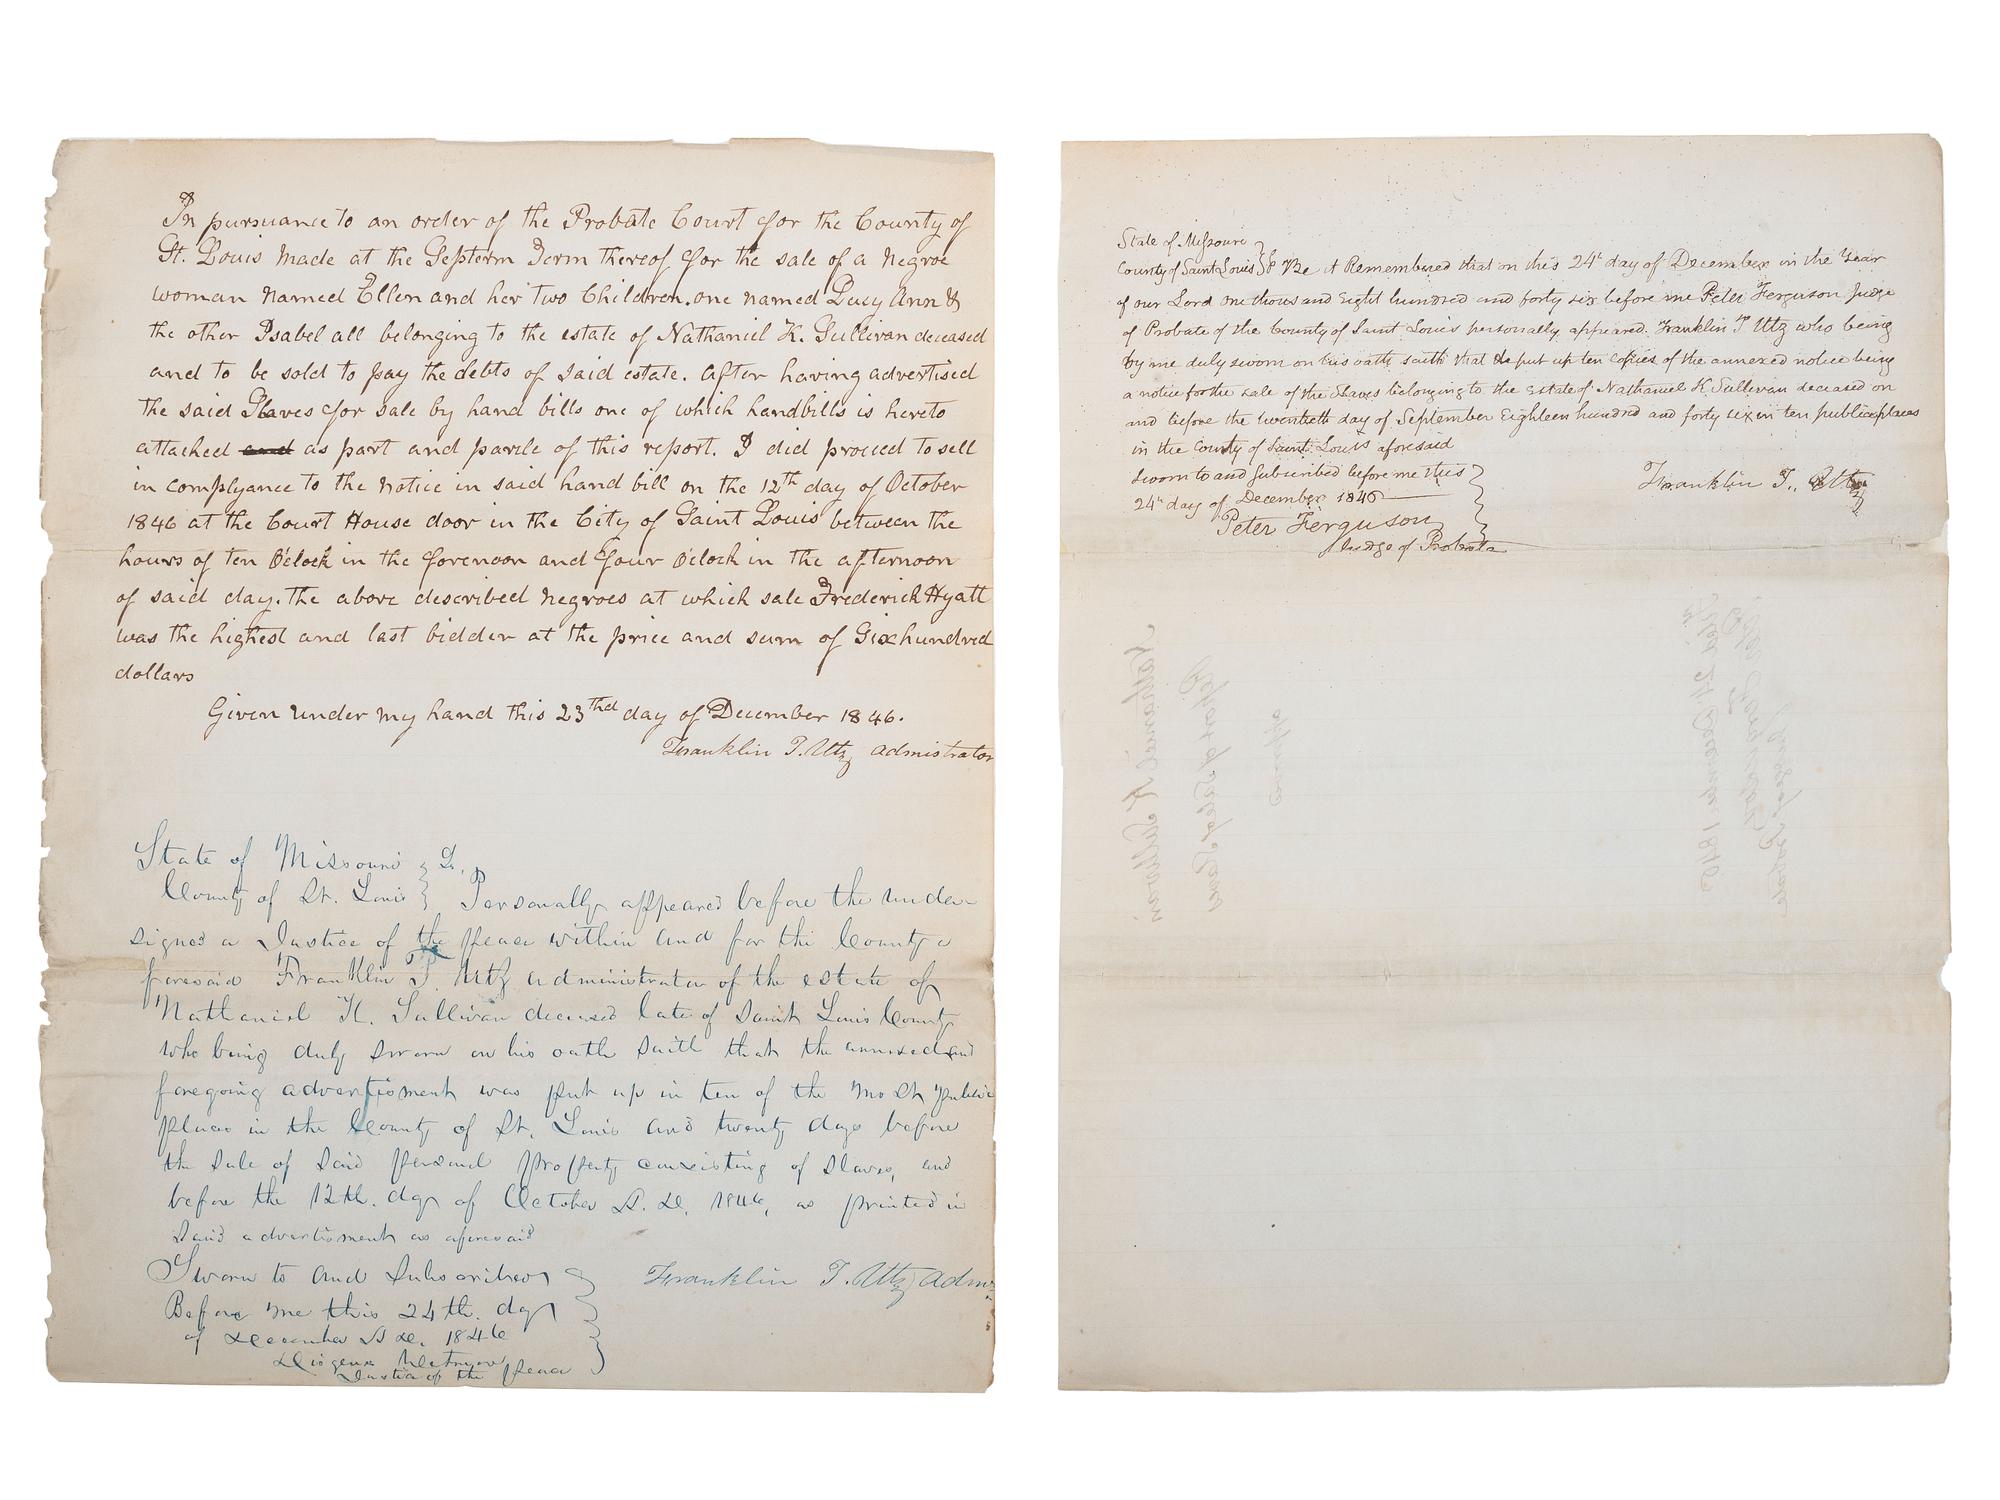 In pursuance to an order of the Probate Court for the County of
St. Louis made at the Septerm Term thereof for the sale of a Negroe
woman named Ellen and her two Children. one named Lucy Ann &
the other Isabel all belonging to the estate of Nathaniel K. Sullivan deceased
and to be sold to pay the debts of said estate. after having advertised
the said Slaves for sale by hand bills one of which handbills is hereto
attached and as part and parcle of this report. I did proceed to sell
in complyance to the Notice in said hand bill on the 12th day of October
1846 at the Court House door in the City of Saint Louis between the
hours of ten O'clock in the forenoon and four O'clock in the afternoon
of said day. the above described Negroes at which sale Frederick Hyatt
was the highest and last bidder at the price and sum of Six hundred
dollars
Given under my hand this 23thd day of December 1846.
Franklin T. Utz admistrator
State of Missouri
County of St. Louis } Personally appeared before the under
signed a Justice of the peace within and for the County a
foresaid Franklin T. Utz administrator of the estate of
Nathaniel K. Sullivan deceased late of Saint Louis County
who being duly sworn on his oath saith that the annexed and
foregoing advertisment was put up in ten of the most public
places in the County of St. Louis and twenty days before
the sale of said personal property consisting of slaves, and
before the 12th. day of October A. D. 1846, as printed in
said advertisment as aforesaid
Sworn to and Subscribed
Franklin T. Utz Admr.
Before me this 24th. day
of December A D. 1846
Justice of the peace
State of Missouri
County of Saint Louis } Be it Remembered that on this 24th day of December in the Year
of our Lord one thousand Eight hundred and forty six before me Peter Ferguson Judge
of Probate of the County of Saint Louis personally appeared. Franklin T Utz who being
by me duly sworn on his oath saith that He put up ten copies of the annexed notice being
a notice for the sale of the Slaves belonging to the Estate of Nathaniel K. Sullivan deceased on
and before the twentieth day of September Eighteen hundred and forty six in ten public places
in the County of Saint Louis aforesaid
Sworn to and Subscribed before me this
24th day of December 1846
Franklin T. Utz
Peter Ferguson
Judge of Probate